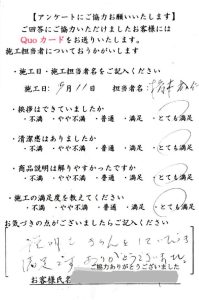 【アンケートにご協力お願いいたします】
ご回答にご協力いただけましたお客様には
Quoカードをお送りいたします。
施工担当者についておうかがいします
・施工日・施工担当者名をご記入ください
施工日: 9月11日 担当者名:
・挨拶はできていましたか
・不満 ・やや不満 ・普通 ・満足 ・とても満足
・清潔感はありましたか
・不満 ・やや不満 ・普通 ・満足 ・とても満足
・商品説明は解りやすかったですか
・不満 ・やや不満 ・普通 ・満足 ・とても満足
・施工の満足度を教えてください
・不満 ・やや不満 ・普通 ・満足 ・とても満足
お気づきの点がございましたらご記入ください
説明も きちんと
満足です ありがとうございました。
ご協力ありがとうございました
お客様氏名